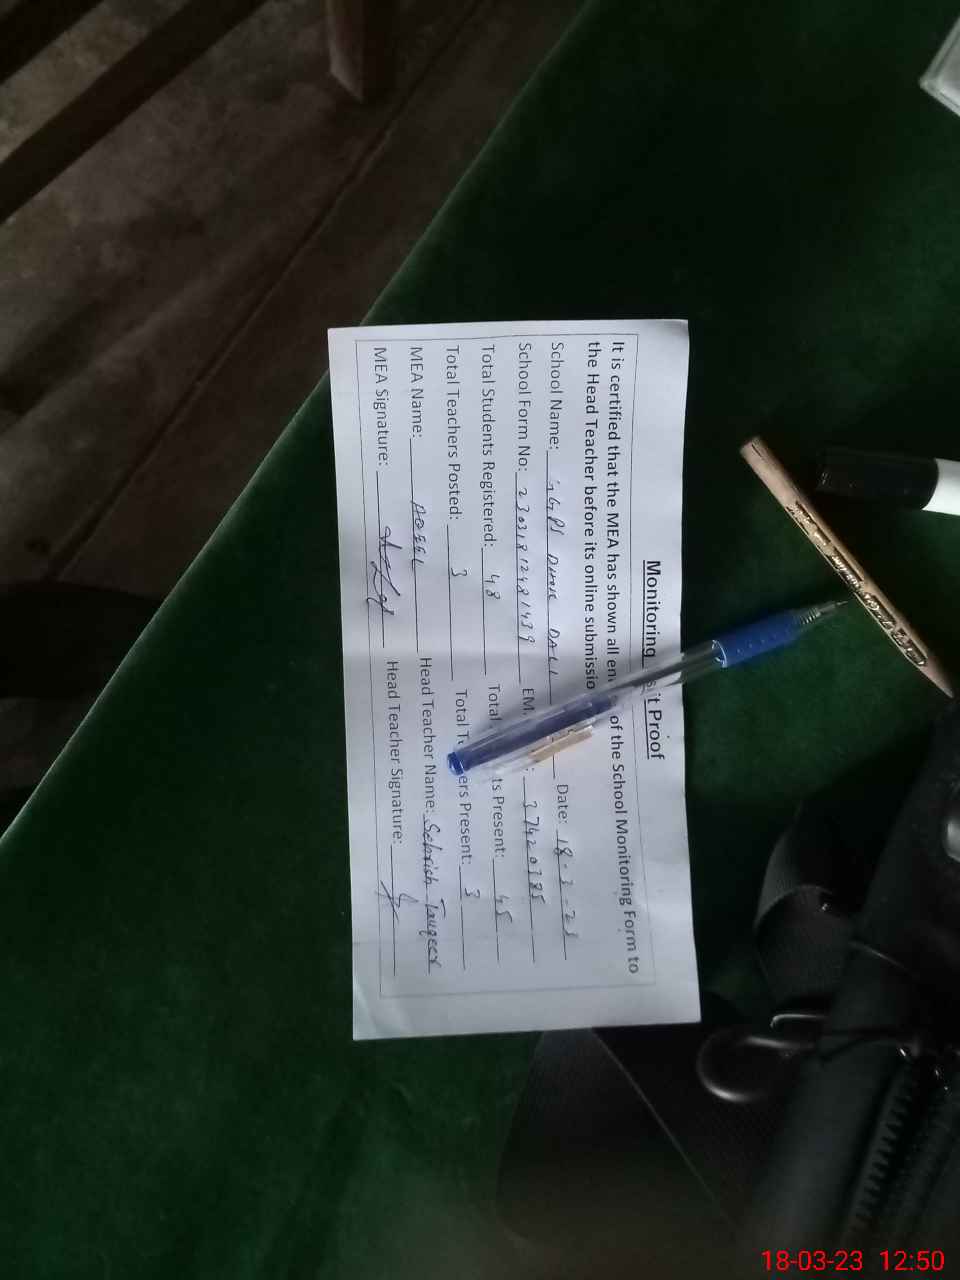 Monitoring it Proof
It is certified that the MEA has shown all of the School Monitoring Form to
the Head Teacher before its online
School Name: GGPS Date: 18-3-23
School Form No: 23031812481439 EM 37420385
Total Students Registered: 48 Total ts Present: 45
Total Teachers Posted: 3 Total ers Present: 3
MEA Name: Head Teacher Name: Sebrish Tauqeer
MEA Signature: Head Teacher Signature:
18-03-23 12:50